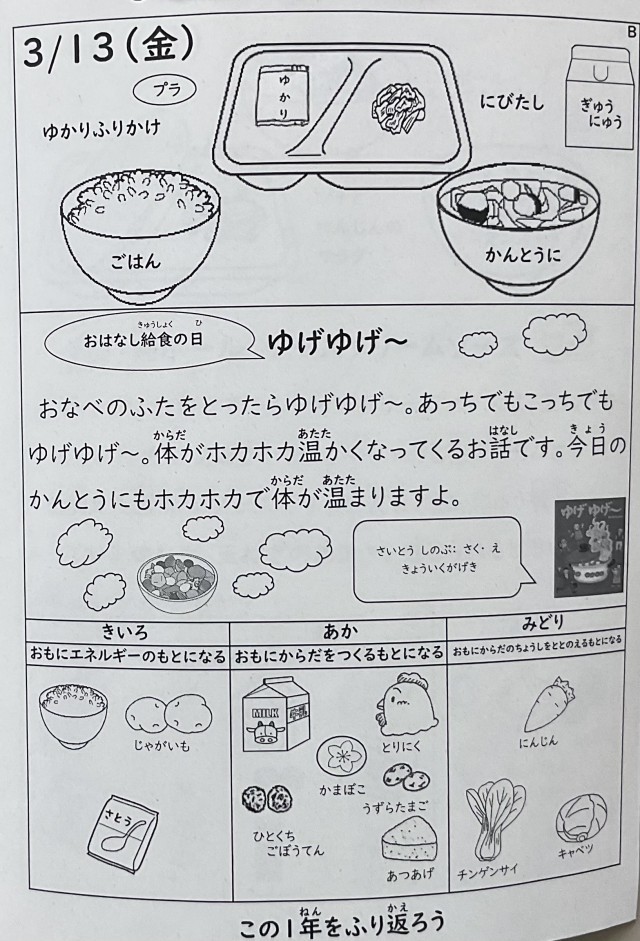 B
3/13(金)
プラ
ゆかりふりかけ
ゆかり
にびたし
ぎゅう
にゅう
ごはん
かんとうに
おはなし給食の日
きゅうしょく ひ
ゆげゆげ～
おなべのふたをとったらゆげゆげ～。あっちでもこっちでも
からだ あたた はなし きょう
ゆげゆげ～。体がホカホカ温かくなってくるお話です。今日の
からだ あたた
かんとうにもホカホカで体が温まりますよ。
ゆげゆげ～
さいとう しのぶ: さく・え
きょういくがげき
きいろ
あか
みどり
おもにエネルギーのもとになる
おもにからだをつくるもとになる
おもにからだのちょうしをととのえるもとになる
じゃがいも
さとう
MILK
牛乳
とりにく
かまぼこ
うずらたまご
ひとくち
ごぼうてん
あつあげ
にんじん
チンゲンサイ
キャベツ
ねん かえ
この1年をふり返ろう